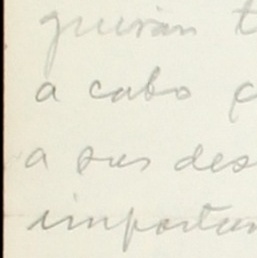 guirán t
a cabo c
a sus des
importan